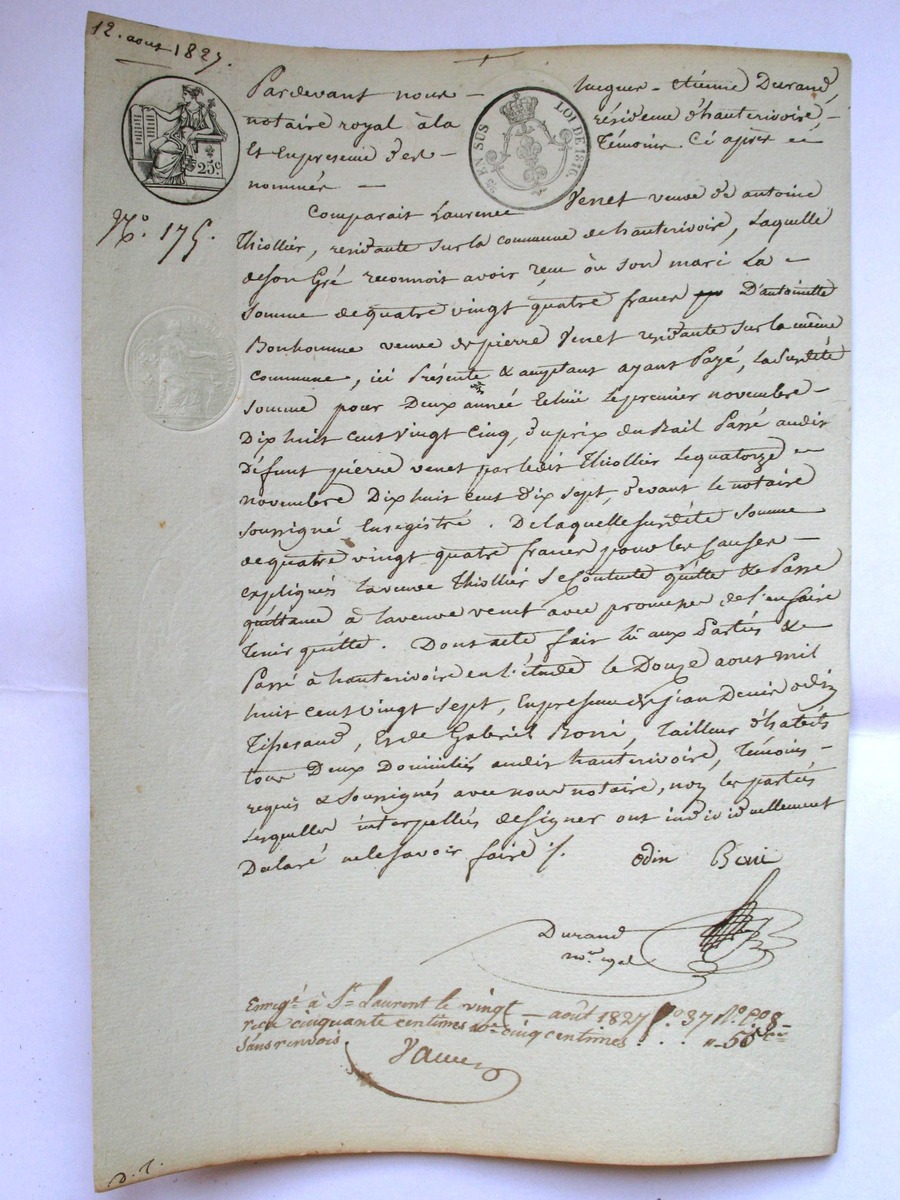 12. aout 1827.
Pardevant nous - Hugues - etienne Durand,
notaire royal à la résidence d'hauterivoire, -
Et En presence des - Témoins Ci après -
nommés -
25c
EN SUS LOI DE 1816.
N.° 175.
Comparait Laurence Venet veuve de antoine
Thiollier, residante sur la commune de hauterivoire, Laquelle
de son Gré reconnoit avoir reçu ou son mari La -
somme de quatre vingt quatre francs D'antoinette
Bonhomme veuve de pierre Venet residante sur la même
commune, ici Présente & acceptant ayant Payé, La Surdite
somme pour Deux année Echüe Le premier novembre -
Dix huit cent vingt Cinq, du prix du Bail Passé audit
Défunt pierre venet par ledit Thiollier Le quatorze -
novembre Dix huit cent dix sept, devant le notaire
soussigné Enregistré. De laquelle surdite somme
de quatre vingt quatre francs pour les Causes -
expliqués la veuve Thiollier Se Contente quitte & Passe
quittance à la veuve venet avec promesse de l'en faire
tenir quitte. Dont acte fait lû aux Parties &
Passé à hauterivoire en l'étude le Douze aout mil
huit cent vingt sept, En presence de jean Denis odin
Tisserand, Et de Gabriel Boni, Tailleur d'habits
tous Deux Domiciliés audit hauterivoire, Témoins -
requis & Soussignés avec nous notaire, non les parties
Lesquelles interpellés de signer ont individuellement
Déclaré ne le savoir faire ./.
odin Boni
Durand
no.re royal
Enreg.é à S.t Laurent le vingt août 1827 f.o 37 R.o C.e 8
reçu cinquante centimes 10.e cinq centimes. .. 55c
Sans renvois
D. t.